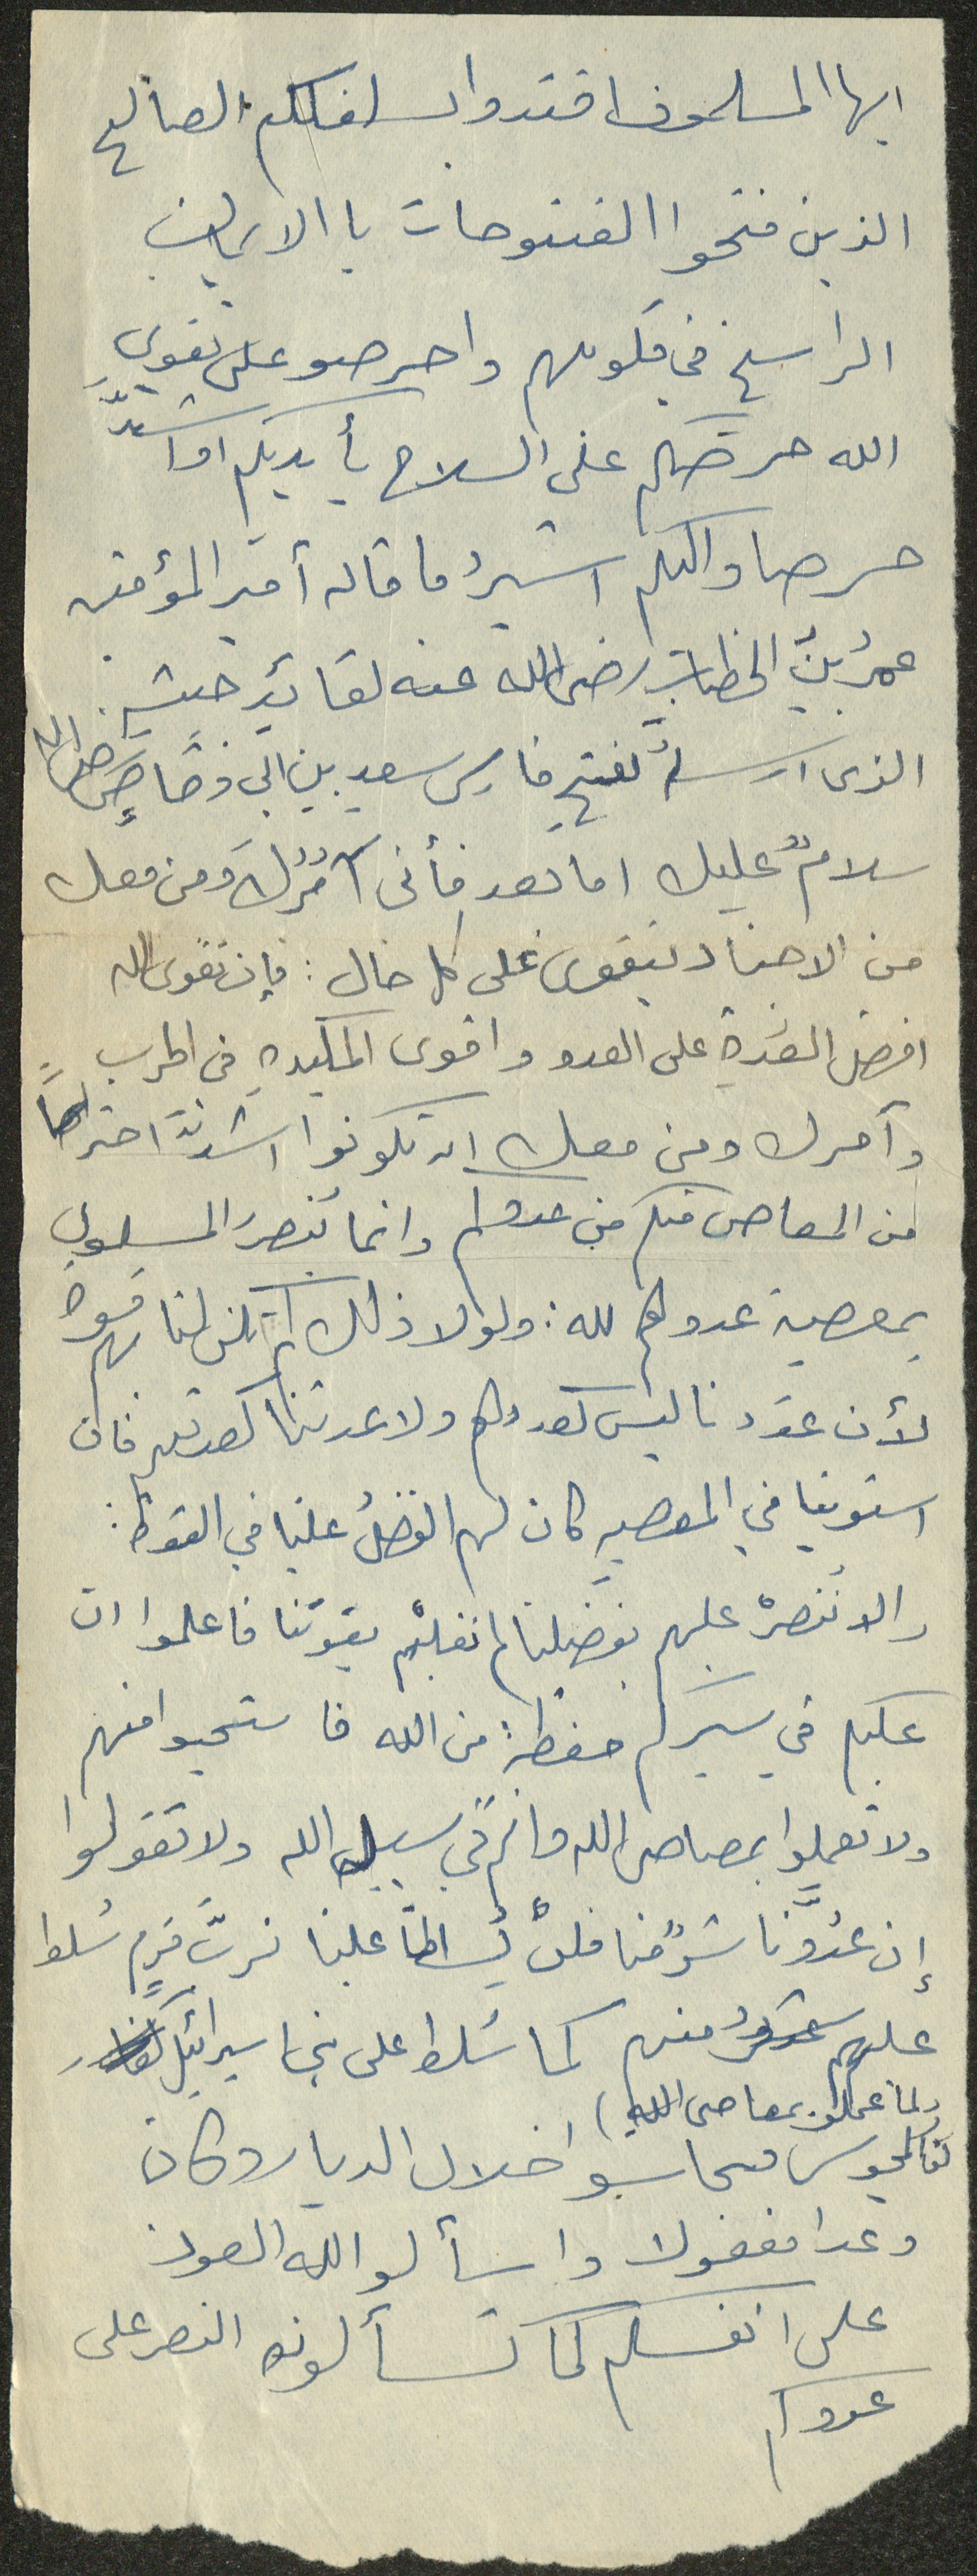 ايها المسلمون اقتدوا بسلفكم الصالح
الذين فتحوا الفتوحات با الايمان
الراسخ في قلوبهم واحرصو على تقوى
الله حرصكم على السلاح بأيديكم او اشدَّ
حرصا واليكم اشيرُ ما قاله أمير المؤمنين
عمرُ بنُ الخطاب رضي الله عنه لقائد جيشه
الذي ارسله لفتح فارس سعد بن ابي وقاصٍ رضي الله
سلامٌ عليك اما بعد فأني آمُرُكَ ومن معك
من الاجناد بتقوى على كل حال : فإن تقوى الله
افضل العُدةِ على العدو واقوى المكيدةِ في الحرب
وآمرك ومن معك ان تكونوا اشدَّ احتراساً
من المعاصي منكم من عدوكم وانما يُنصرَ المسلمون
بمعصية عدوهم لله : ولولا ذلك لم تكن لنا بهم قوة
لأن عدَدنا ليس كعددهم ولا عدتنا كعدتهم فان
استوينا في المعصية كان لهم الفضلُ علينا في القوة :
والا نُنصرْ عليهم بفضلنا لم نغلبْهم بقوتنا فاعلموا ان
عليكم في سيركم حفظةً من الله فاستحيوا منهم
ولا تعملوا بمعاصي الله وانتم في سبيل الله ولا تقولوا
إن عدُوَّنا شرٌ منا فلنْ يُسلطَ علينا فربَّ قومٍ سُلط
عليهم شرٌ منهم كما سُلط على بني اسرائيل كفار
(لما عملو بمعاصي الله)
كفا المجوس فجاسو اخلال الديار وكان
وعدا مفعولا واسألو الله العون
على انفسكم كما تسألونه النصر على
عدوكم